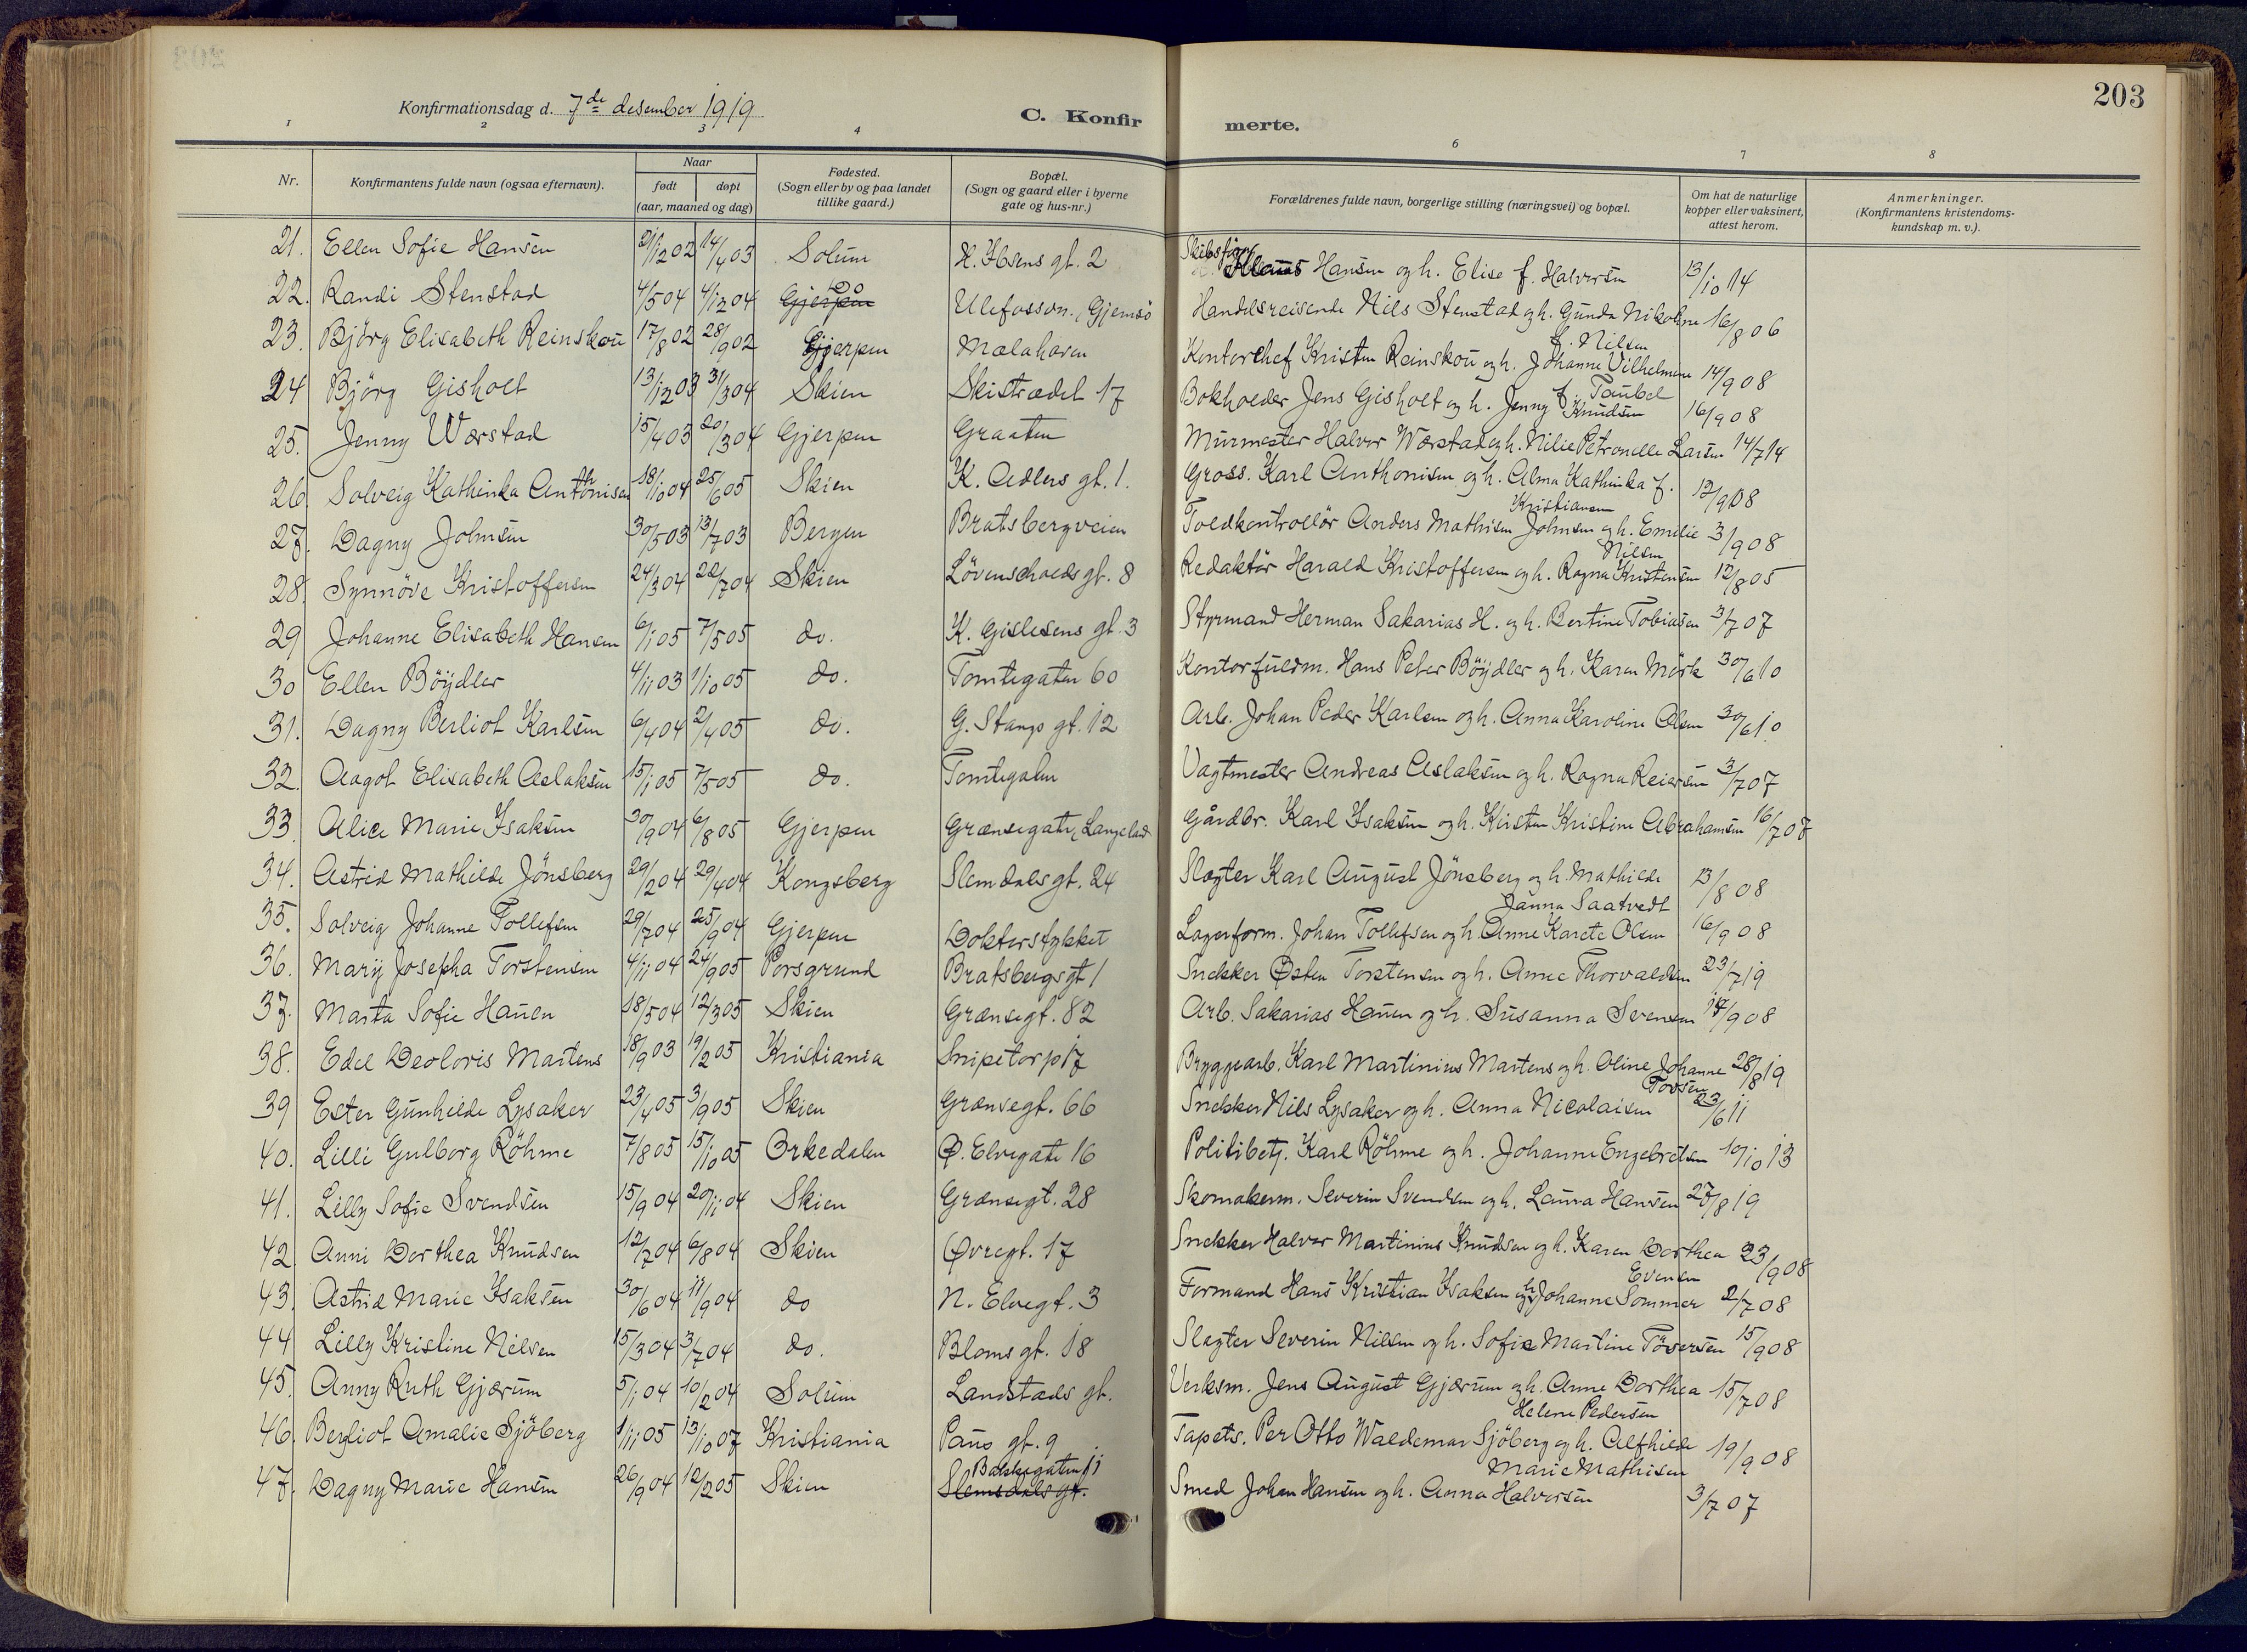 203
Konfirmationsdag d. 7de desember 1919
C. Konfirmerte.
1 2 3 4 6 7 8
Nr. Konfirmantens fulde navn (ogsaa efternavn). Naar født døpt (aar, maaned og dag) Fødested. (Sogn eller by og paa landet tillike gaard.) Bopæl. (Sogn og gaard eller i byerne gate og hus-nr.) Forældrenes fulde navn, borgerlige stilling (næringsvei) og bopæl. Om hat de naturlige kopper eller vaksinert, attest herom. Anmerkninger. (Konfirmantens kristendoms-kundskap m. v.).
21. Ellen Sofie Hansen 21/12 02 14/4 03 Solum H. Ibsens gt. 2 Skibsfører Klaus Hansen og h. Elise f. Halvorsen 13/10 14
22. Randi Stenstad 4/5 04 4/12 04 Gjerpen do Ulefossvn. Gjemsö Handelsreisende Nils Stenstad og h. Gunda Nikoline f. Nilsen 16/8 06
23. Björg Elisabeth Reinskou 17/8 02 28/9 02 Gjerpen Mælahaven Kontorchef Kristen Reinskou og h. Johanne Vilhelmine f. Taubel 14/9 08
24 Björg Gisholt 13/12 03 3/3 04 Skien Skistrædet 17 Bokholder Jens Gisholt og h. Jenny f. Knudsen 16/9 08
25. Jenny Wærstad 15/4 03 20/3 04 Gjerpen Graaten Murmester Halvor Wærstad og h. Nilie Petronelle Larsen 14/7 14
26 Solveig Kathinka Anthonisen 18/10 04 25/6 05 Skien K. Adlers gt. 1. Gross. Karl Anthonisen og h. Alma Kathinka f. Kristiansen 12/9 08
27. Dagny Johnsen 30/5 03 13/7 03 Bergen Bratsbergveien Toldkontrollör Anders Mathisen Johnsen og h. Emilie Nilsen 3/9 08
28. Synnöve Kristoffersen 24/3 04 22/7 04 Skien Lövenscholds gt. 8 Redaktör Harald Kristoffersen og h. Ragna Kristensen 12/8 05
29 Johanne Elisabeth Hansen 6/1 05 7/5 05 do. K. Gislesens gt. 3 Styrmand Herman Sakarias H. og h. Bertine Tobiasen 3/7 07
30 Ellen Böydler 4/11 03 1/10 05 do. Tomtegaten 60 Kontorfuldm. Hans Peter Böydler og h. Karen Mörk 30/6 10
31. Dagny Berliot Karlsen 6/4 04 2/4 05 do. G. Stangs gt. 12 Arb. Johan Peder Karlsen og h. Anna Karoline Olsen 30/6 10
32. Aagot Elisabeth Aslaksen 15/1 05 7/5 05 do. Tomtegaten Vagtmester Andreas Aslaksen og h. Ragna Reiersen 3/7 07
33. Alice Marie Isaksen 30/9 04 6/8 05 Gjerpen Grænsegaten, Langelad Gårdbr. Karl Isaksen og h. Kirsten Kristine Abrahamsen 16/7 07
34. Astrid Mathilde Jönsberg 29/2 04 29/4 04 Kongsberg Slemdalsgt. 24 Slagter Karl August Jönsberg og h. Mathilde Janna Saatvedt 13/8 08
35. Solveig Johanne Tollefsen 29/7 04 25/9 04 Gjerpen Doktorstykket Lagerform. Johan Tollefsen og h. Anne Karete Olsen 16/9 08
36. Mary Josepha Torstensen 4/11 04 24/9 05 Porsgrund Bratsbergsgt 1 Snekker Østen Torstensen og h. Anne Thorvaldsen 23/7 19
37. Marta Sofie Hauen 18/5 04 12/3 05 Skien Grænsegt. 82 Arb. Sakarias Hauen og h. Susanna Svensen 14/9 08
38. Edel Deoloris Martens 18/9 03 19/2 05 Kristiania Snipetorp 17 Bryggearb. Karl Martinius Martens og h. Oline Johanne Tovsen 28/8 19
39 Ester Gunhilde Lysaker 23/4 05 3/9 05 Skien Grænsegt. 66 Snekker Nils Lysaker og h. Anna Nicolaisen 23/6 11
40. Lilli Gulborg Röhme 7/8 05 15/10 05 Orkedalen Ø. Elvegate 16 Politibetj. Karl Röhme og h. Johanne Engebretsen 10/10 13
41. Lilly Sofie Svendsen 15/9 04 20/11 04 Skien Grænsegt. 28 Skomakerm. Severin Svendsen og h. Laura Hansen 27/8 19
42. Anni Dorthea Knudsen 12/7 04 6/8 04 Skien Øvregt. 17 Snekker Halvor Martinius Knudsen og h. Karen Dorthea Evensen 23/9 08
43. Astrid Marie Isaksen 30/6 04 11/9 04 do N. Elvegt. 3 Formand Hans Kristian Isaksen og h. Johanne Sommer 2/7 08
44 Lilly Kristine Nilsen 15/3 04 3/7 04 do. Bloms gt. 18 Slagter Severin Nilsen og h. Sofie Martine Töversen 15/9 08
45. Anny Ruth Gjærum 5/1 04 10/2 04 Solum Landstads gt. Verksm. Jens August Gjærum og h. Anne Dorthea Helene Pedersen 15/7 08
46. Bergliot Amalie Sjöberg 1/11 05 13/10 07 Kristiania Paus gt. 9 Tapets. Per Otto Waldemar Sjöberg og h. Alfhilde Marie Mathisen 19/9 08
47. Dagny Marie Hansen 26/9 04 12/2 05 Skien Bakkegaten 11 Slemsdals gt. Smed Johan Hansen og h. Anna Halvorsen 3/7 07